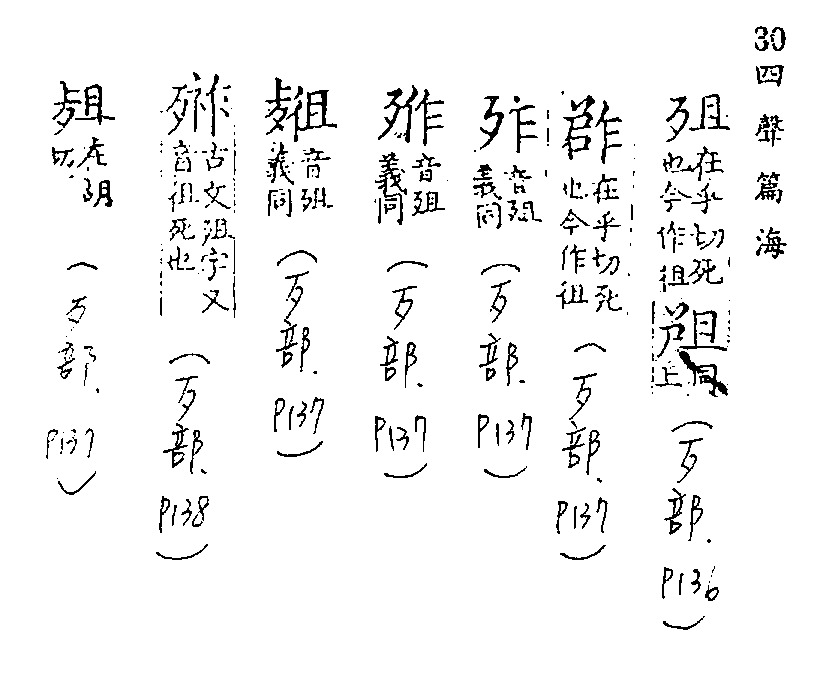 30四聲篇海
殂 在乎切死也今作徂 同上 (歹部.P136)
在乎切死也今作徂 (歹部.P137)
音殂義同 (歹部.P137)
音殂義同 (歹部.P137)
音殂義同 (歹部.P137)
古文殂字又音徂死也 (歹部.P138)
在切 (歹部.P137)